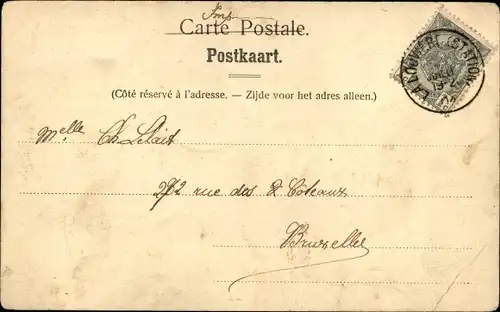 Imp
Carte Postale.
Postkaart.
(Côté réservé à l'adresse. — Zijde voor het adres alleen.)
LA LOUVIÈRE (STATION)
Melle Ch. Lelait
272 rue des 2 Côteaux
Bruxelles